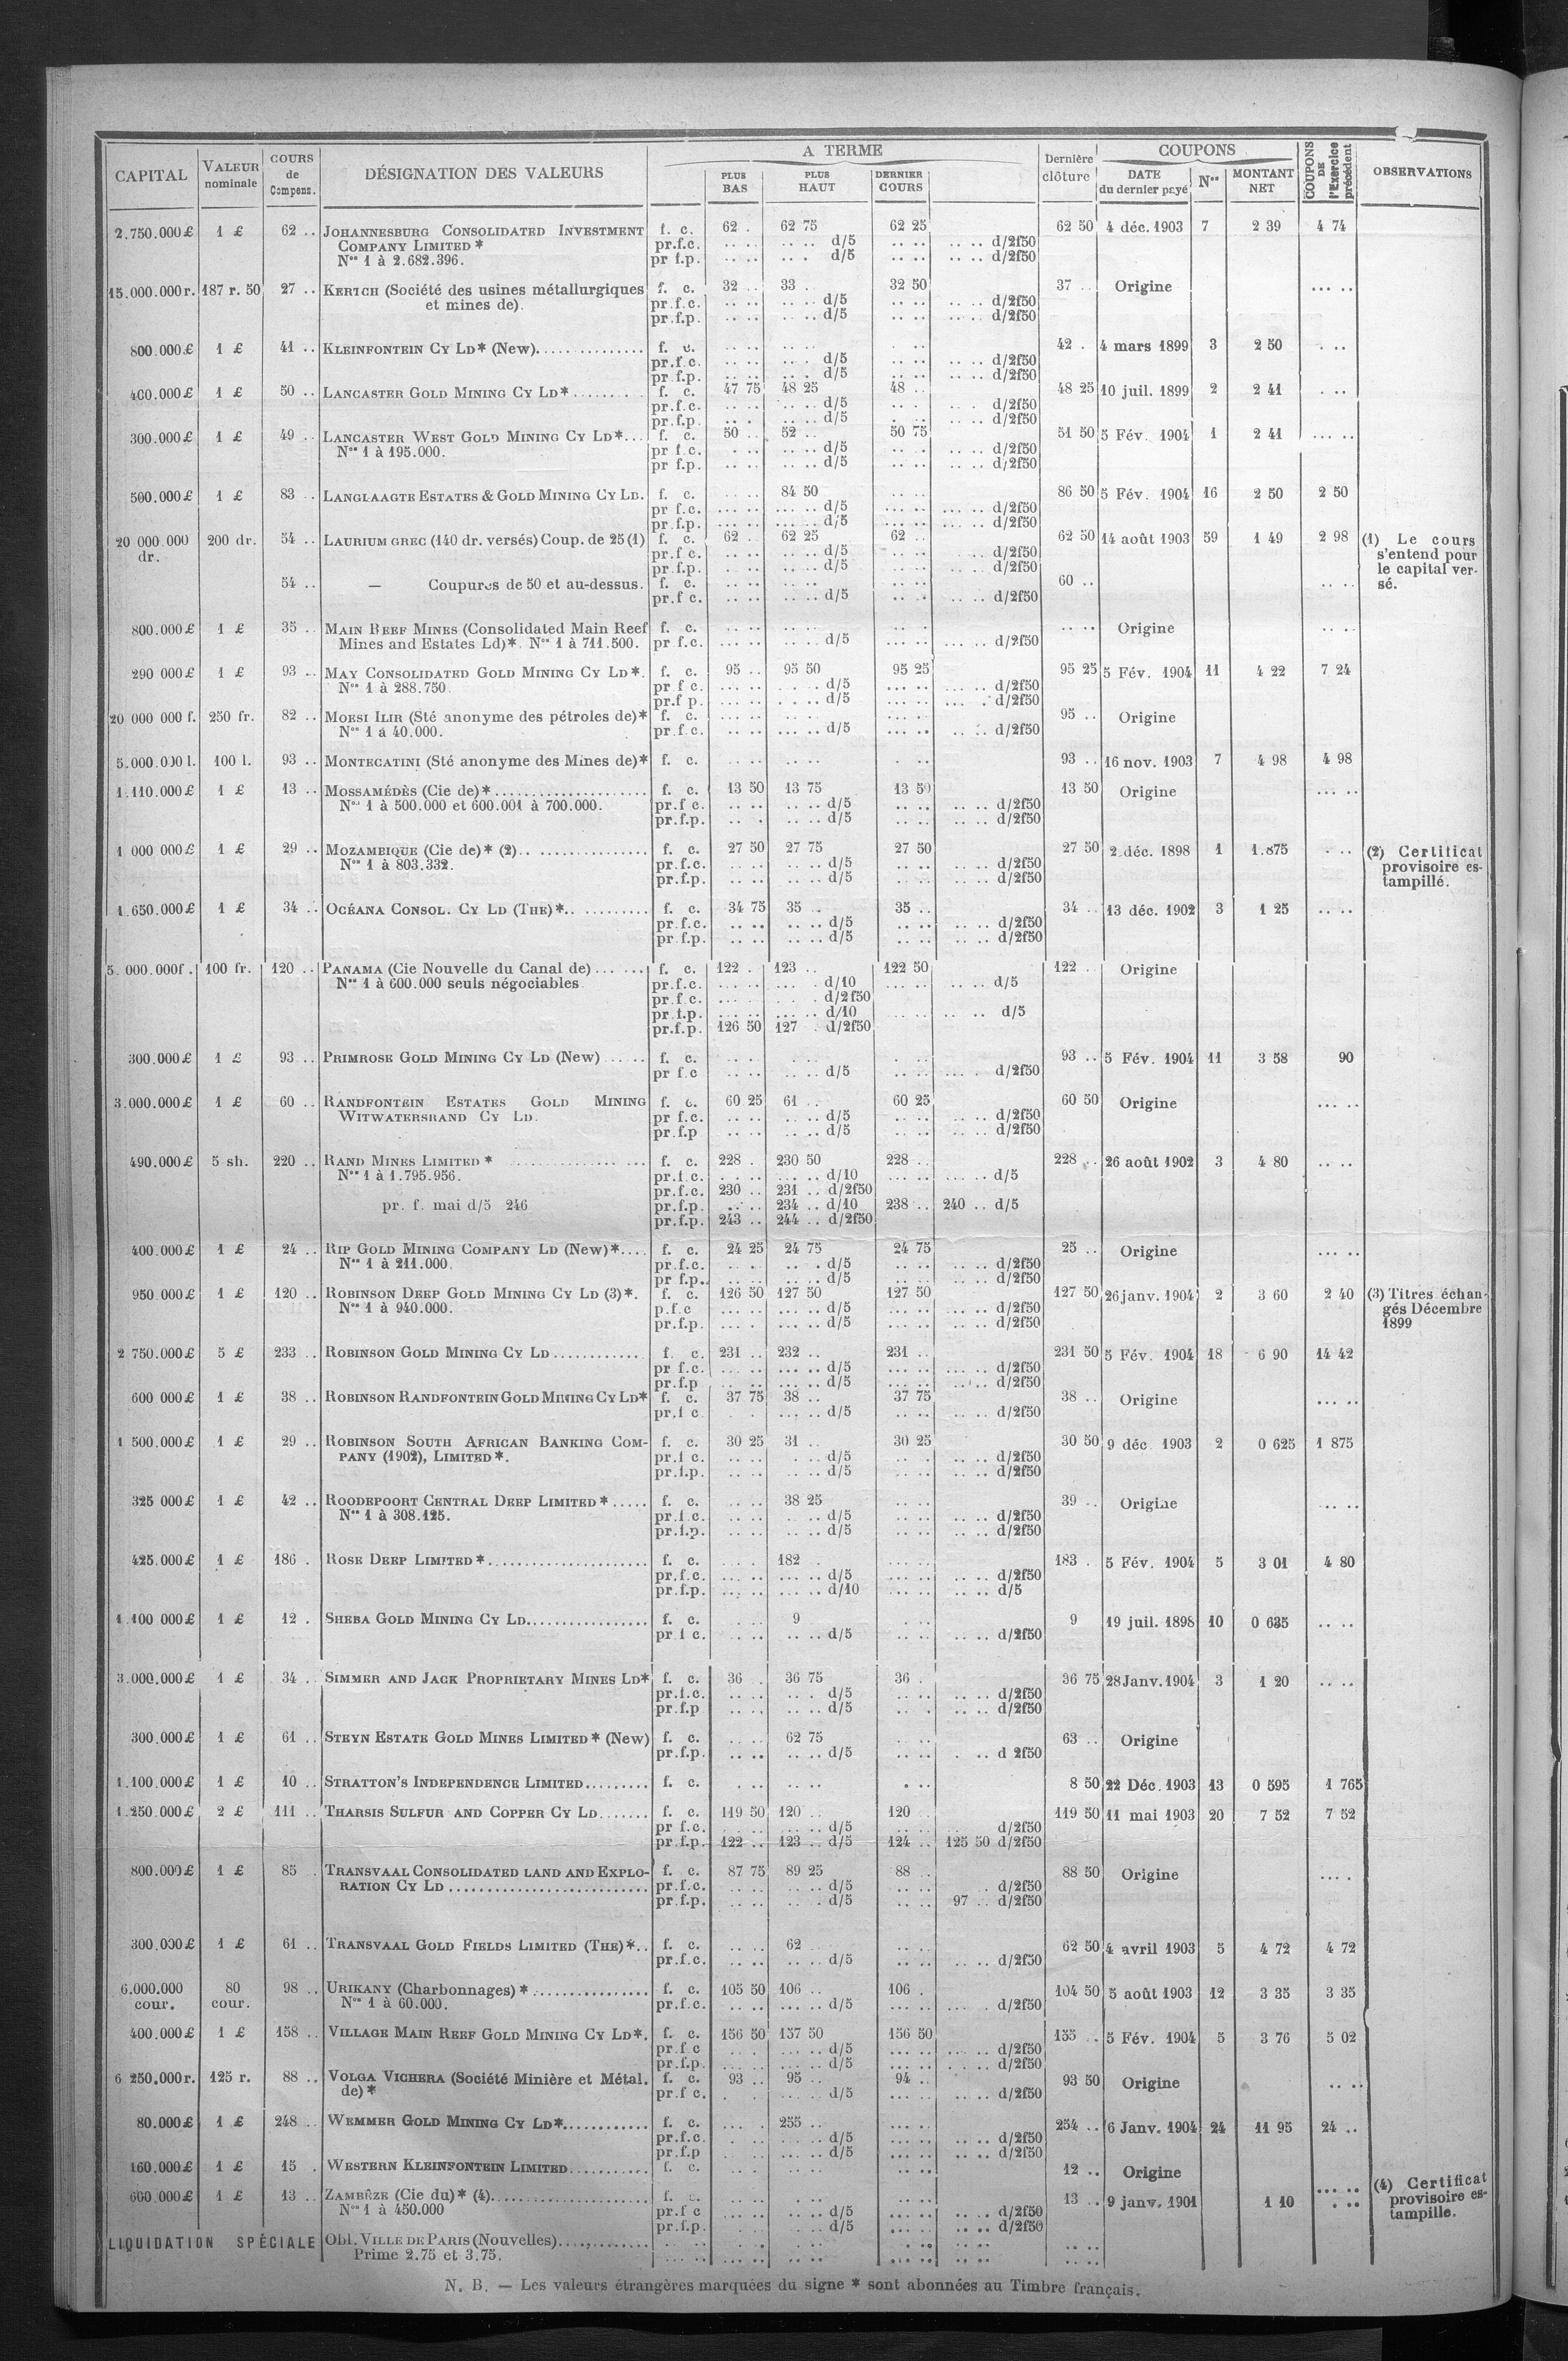 CAPITAL | VALEUR nominale | COURS de Compens. | DÉSIGNATION DES VALEURS | A TERME | Dernière clôture | COUPONS | COUPONS DE l'Exercice précédent | OBSERVATIONS
PLUS BAS | PLUS HAUT | DERNIER COURS | DATE du dernier payé | Nos | MONTANT NET
2.750.000£ 1 £ 62 .. JOHANNESBURG CONSOLIDATED INVESTMENT f. c. 62 . 62 75 62 25 62 50 4 déc. 1903 7 2 39 4 74
COMPANY LIMITED * pr.f.c. .. .. .. .. d/5 .. .. .. .. d/2f50
Nos 1 à 2.682.396. pr f.p. .. .. .. . d/5 .. .. .. .. d/2f50
15.000.000r. 187 r. 50 27 .. KERTCH (Société des usines métallurgiques f. c. 32 .. 33 . 32 50 37 .. Origine ... ..
et mines de). pr.f.c. .. .. .. .. d/5 .. .. .. .. d/2f50
pr.f.p. .. .. .. .. d/5 .. .. .. .. d/2f50
800.000£ 1 £ 41 .. KLEINFONTEIN CY LD* (New)............... f. c. .. .. .. .. .. 42 . 4 mars 1899 3 2 50 . ..
pr.f.c. .. .. .. . d/5 .. .. .. .. d/2f50
pr.f.p. .. .. .. . d/5 .. .. .. .. d/2f50
400.000£ 1 £ 50 .. LANCASTER GOLD MINING CY LD*......... f. c. 47 75 48 25 48 .. 48 25 10 juil. 1899 2 2 41 . ..
pr.f.c. .. .. .. .. d/5 .. . .. . d/2f50
pr.f.p. .. . .. .. d/5 .. .. .. .. d/2f50
300.000£ 1 £ 49 .. LANCASTER WEST GOLD MINING CY LD*... f. c. 50 .. 52 .. 50 75 51 50 5 Fév. 1904 1 2 41 ... ..
Nos 1 à 195.000. pr f.c. . .. .. .. d/5 .. .. .. .. d/2f50
pr f.p. .. .. .. .. d/5 .. .. .. .. d/2f50
500.000£ 1 £ 83 .. LANGLAAGTE ESTATES & GOLD MINING CY LD. f. c. .. .. 84 50 .. .. 86 50 5 Fév. 1904 16 2 50 2 50
pr f.c. ... .. ... .. d/5 ... .. ... .. d/2f50
pr.f.p. ... .. ... .. d/5 ... .. ... .. d/2f50
20 000.000 200 dr. 54 .. LAURIUM GREC (140 dr. versés) Coup. de 25 (1) f. c. 62 .. 62 25 62 .. 62 50 14 août 1903 59 1 49 2 98 (1) Le cours
dr. pr.f c. .. .. .. .. d/5 .. .. .. .. d/2f50 s'entend pour
pr.f.p. .. .. .. .. d/5 .. .. .. .. d/2f50 le capital ver-
54 .. — Coupures de 50 et au-dessus. f. c. .. .. .. .. .. .. 60 .. .. .. sé.
pr.f c. .. .. .. .. d/5 .. . .. .. d/2f50
800.000£ 1 £ 35 .. MAIN REEF MINES (Consolidated Main Reef f. c. .. .. .. .. .. . .. .. Origine .. ..
Mines and Estates Ld)*. Nos 1 à 711.500. pr f.c. .. .. ... .. d/5 ... .. ... .. d/2f50
290 000£ 1 £ 93 .. MAY CONSOLIDATED GOLD MINING CY LD*. f. c. 95 .. 95 50 95 25 95 25 5 Fév. 1904 11 4 22 7 24
Nos 1 à 288.750. pr f c. ... .. . .. d/5 ... .. ... .. d/2f50
pr.f p. ... .. . .. d/5 ... .. ... . d/2f50
20 000 000 f. 250 fr. 82 .. MOESI ILIR (Sté anonyme des pétroles de)* f. c. .. .. .. .. .. .. 95 .. Origine
Nos 1 à 40.000. pr.f.c. .. .. ... .. d/5 ... .. .. .. d/2f50
5.000.000 l. 100 l. 93 .. MONTECATINI (Sté anonyme des Mines de)* f. c. .. .. .. .. . .. 93 .. 16 nov. 1903 7 4 98 4 98
1.110.000£ 1 £ 13 .. MOSSAMÉDÈS (Cie de)*..................... f. c. 13 50 13 75 13 50 13 50 Origine ... ..
Nos 1 à 500.000 et 600.001 à 700.000. pr.f c. .. .. .. .. d/5 .. .. .. .. d/2f50
pr.f.p. .. . .. .. d/5 .. .. .. .. d/2f50
1 000 000£ 1 £ 29 .. MOZAMBIQUE (Cie de)* (2).. ............... f. c. 27 50 27 75 27 50 27 50 2 déc. 1898 1 1.875 . .. (2) Certificat
Nos 1 à 803.332. pr.f.c. .. .. .. .. d/5 .. .. .. .. d/2f50 provisoire es-
pr.f.p. .. .. .. .. d/5 .. .. .. .. d/2f50 tampillé.
1.650.000£ 1 £ 34 .. OCÉANA CONSOL. CY LD (THE)*.. ......... f. c. 34 75 35 .. 35 .. 34 .. 13 déc. 1902 3 1 25 .. ..
pr.f.c. .. .. .. .. d/5 .. .. .. .. d/2f50
pr.f.p. .. .. .. .. d/5 .. .. .. .. d/2f50
5. 000.000f. 100 fr. 120 .. PANAMA (Cie Nouvelle du Canal de)... ... f. c. 122 . 123 .. 122 50 122 .. Origine
Nos 1 à 600.000 seuls négociables pr.f.c. ... .. ... . d/10 ... .. .. .. d/5
pr.f.c. ... . . . d/2f50
pr.f.p. ... .. ... .. d/10 ... .. .. .. d/5
pr.f.p. 126 50 127 . d/2f50
300.000£ 1 £ 93 .. PRIMROSE GOLD MINING CY LD (New) ..... f. c. .. .. . .. . .. 93 .. 5 Fév. 1904 11 3 58 90
pr f.c .. .. .. .. d/5 .. .. ... . d/2f50
3.000.000£ 1 £ 60 .. RANDFONTEIN ESTATES GOLD MINING f. c. 60 25 61 .. 60 25 60 50 Origine ... ..
WITWATERSRAND CY LD. pr f.c. .. .. . .. d/5 .. .. .. .. d/2f50
pr.f.p .. .. .. .. d/5 .. .. .. .. d/2f50
490.000£ 5 sh. 220 .. RAND MINES LIMITED * ............... ... f. c. 228 . 230 50 228 .. 228 .. 26 août 1902 3 4 80 .. ..
Nos 1 à 1.795.956. pr.f.c. . . .. ... .. d/10 ... .. ... .. d/5
pr.f.c. 230 .. 231 .. d/2f50
pr. f. mai d/5 246 pr.f.p. .. .. 234 .. d/10 238 .. 240 .. d/5
pr.f.p. 243 .. 244 .. d/2f50
400.000£ 1 £ 24 .. RIP GOLD MINING COMPANY LD (New)*.... f. c. 24 25 24 75 24 75 25 .. Origine ... ..
Nos 1 à 211.000. pr.f.c. .. . .. . d/5 .. .. .. .. d/2f50
pr f.p.. .. .. .. .. d/5 .. .. .. .. d/2f50
950.000£ 1 £ 120 .. ROBINSON DEEP GOLD MINING CY LD (3)*. f. c. 126 50 127 50 127 50 127 50 26 janv. 1904 2 3 60 2 40 (3) Titres échan-
Nos 1 à 940.000. p.f.c ... .. ... .. d/5 ... .. ... .. d/2f50 gés Décembre
pr.f.p. ... . ... .. d/5 ... .. ... .. d/2f50 1899
2 750.000£ 5 £ 233 .. ROBINSON GOLD MINING CY LD............ f. c. 231 .. 232 .. 231 .. 231 50 5 Fév. 1904 18 6 90 14 42
pr f.c. ... .. ... .. d/5 ... .. ... .. d/2f50
pr.f.p .. .. ... .. d/5 ... .. ... .. d/2f50
600 000£ 1 £ 38 .. ROBINSON RANDFONTEIN GOLD MINING CY LD* f. c. 37 75 38 .. 37 75 38 .. Origine ... ..
pr.f c . . ... .. d/5 .. .. .. .. d/2f50
1 500.000£ 1 £ 29 .. ROBINSON SOUTH AFRICAN BANKING COM- f. c. 30 25 31 .. 30 25 30 50 9 déc. 1903 2 0 625 1 875
PANY (1902), LIMITED*. pr.f c. .. .. . .. d/5 .. . .. .. d/2f50
pr.f.p. .. .. .. .. d/5 .. .. .. .. d/2f50
325 000£ 1 £ 42 .. ROODEPOORT CENTRAL DEEP LIMITED*..... f. c. .. .. 38 25 .. .. 39 .. Origine .. ..
Nos 1 à 308.125. pr.f.c. .. .. .. .. d/5 .. .. .. .. d/2f50
pr.f.p. .. .. .. .. d/5 .. .. .. .. d/2f50
425.000£ 1 £ 186 . ROSE DEEP LIMITED*..................... f. c. .. . 182 . 183 . 5 Fév. 1904 5 3 01 4 80
pr.f.c. ... .. ... .. d/5 ... .. .. .. d/2f50
pr.f.p. ... .. ... .. d/10 ... .. .. .. d/5
1 100 000£ 1 £ 12 . SHEBA GOLD MINING CY LD................ f. c. .. .. 9 .. .. 9 19 juil. 1898 10 0 635 .. ..
pr f c. . .. .. .. d/5 .. .. .. .. d/2f50
3.000.000£ 1 £ 34 . SIMMER AND JACK PROPRIETARY MINES LD* f. c. 36 . 36 75 36 . 36 75 28 Janv. 1904 3 1 20 .. ..
pr.f.c. .. .. .. . d/5 .. .. .. .. d/2f50
pr.f.p .. .. .. .. d/5 .. . .. .. d/2f50
300.000£ 1 £ 61 .. STEYN ESTATE GOLD MINES LIMITED* (New) f. c. .. .. 62 75 .. .. 63 .. Origine
pr.f.p. .. .. .. .. d/5 .. .. . .. d 2f50
1.100.000£ 1 £ 10 .. STRATTON'S INDEPENDENCE LIMITED......... f. c. . .. .. .. . .. 8 50 22 Déc. 1903 13 0 595 1 765
1.250 000£ 2 £ 111 .. THARSIS SULFUR AND COPPER CY LD....... f. c. 119 50 120 .. 120 .. 119 50 11 mai 1903 20 7 52 7 52
pr f.c. . .. .. .. d/5 .. .. d/2f50
pr.f.p. 122 .. 123 .. d/5 124 .. 125 50 d/2f50
800.000£ 1 £ 85 . TRANSVAAL CONSOLIDATED LAND AND EXPLO- f. c. 87 75 89 25 88 .. 88 50 Origine ... .
RATION CY LD ......................... pr.f.c. .. .. .. .. d/5 .. .. . d/2f50
pr.f.p. .. .. .. . d/5 .. .. 97 .. d/2f50
300.000£ 1 £ 61 .. TRANSVAAL GOLD FIELDS LIMITED (THE)*.. f. c. .. .. 62 .. .. .. 62 50 4 avril 1903 5 4 72 4 72
pr.f.c. .. .. .. .. d/5 .. .. d/2f50
6.000.000 80 98 .. URIKANY (Charbonnages) *................ f. c. 105 50 106 .. 106 . 104 50 5 août 1903 12 3 35 3 35
cour. cour. Nos 1 à 60.000. pr.f.c. .. .. ... .. d/5 ... .. ... . d/2f50
400.000£ 1 £ 158 .. VILLAGE MAIN REEF GOLD MINING CY LD*. f. c. 156 50 157 50 156 50 155 .. 5 Fév. 1904 5 3 76 5 02
pr.f c .. . ... .. d/5 ... .. ... .. d/2f50
pr.f.p. ... .. ... .. d/5 ... .. . .. d/2f50
6 250.000r. 125 r. 88 .. VOLGA VICHERA (Société Minière et Métal. f. c. 93 .. 95 .. 94 .. 93 50 Origine .. ..
de)* pr.f c. . . . .. d/5 ... .. ... .. d/2f50
80.000£ 1 £ 248 .. WEMMER GOLD MINING CY LD*............ f. c. ... . 255 .. ... .. 254 .. 6 Janv. 1904 24 11 95 24 ..
pr.f.c. . .. ... .. d/5 ... .. .. .. d/2f50
pr.f.p . .. ... .. d/5 ... .. .. .. d/2f50
160.000£ 1 £ 15 . WESTERN KLEINFONTEIN LIMITED........... f. c. .. . .. .. .. .. 12 .. Origine
600.000£ 1 £ 13 .. ZAMBÈZE (Cie du)* (4)................... f. c. .. . .. .. .. .. 13 .. 9 janv. 1901 1 10 ... .. (4) Certificat
Nos 1 à 450.000 pr.f c .. .. .. .. d/5 ... .. .. .. d/2f50 provisoire es-
pr.f.p. .. .. .. .. d/5 ... .. .. .. d/2f50 tampille.
LIQUIDATION SPÉCIALE Obl. VILLE DE PARIS (Nouvelles)..............
Prime 2.75 et 3.75.
N. B. — Les valeurs étrangères marquées du signe * sont abonnées au Timbre français.